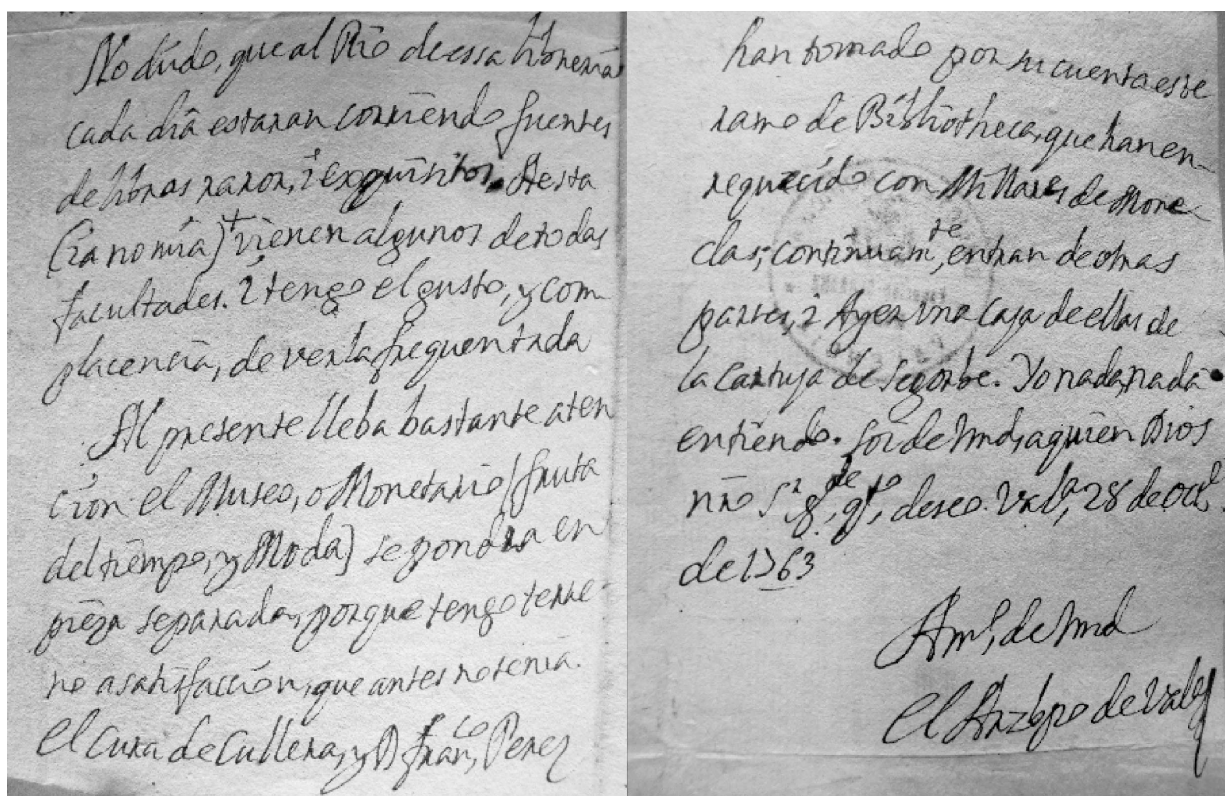 No dudo, que al Rio de essa libreria
cada dia estaran corriendo fuentes
de libros raros, i exquisitos. A esta
(ia no mia) vienen algunos de todas
facultades. I tengo el gusto, y com
placencia, de verla frequentada
Al presente lleba bastante aten
cion el Museo, o Monetario (fruta
del tiempo, y Moda) se pondra en
pieza separada, porque tengo terre-
no a satisfacción, que antes no tenia.
El Cura de Cullera, y D Fran.co Perez
han tomado por su cuenta este
ramo de Bibliotheca, que han en-
requecido con Millares de Mone-
das; continuam.te, entran de otras
partes, i Ayer una Caja de ellas de
la Cartuja de Segorbe. Yo nada, nada
entiendo. Soi de Vmd, a quien Dios
nro S.r g.de, q.to, deseo. Val.a, 28 de Oct.
de 1763
Am.o, de Vmd
El Arzbpo de Val.a